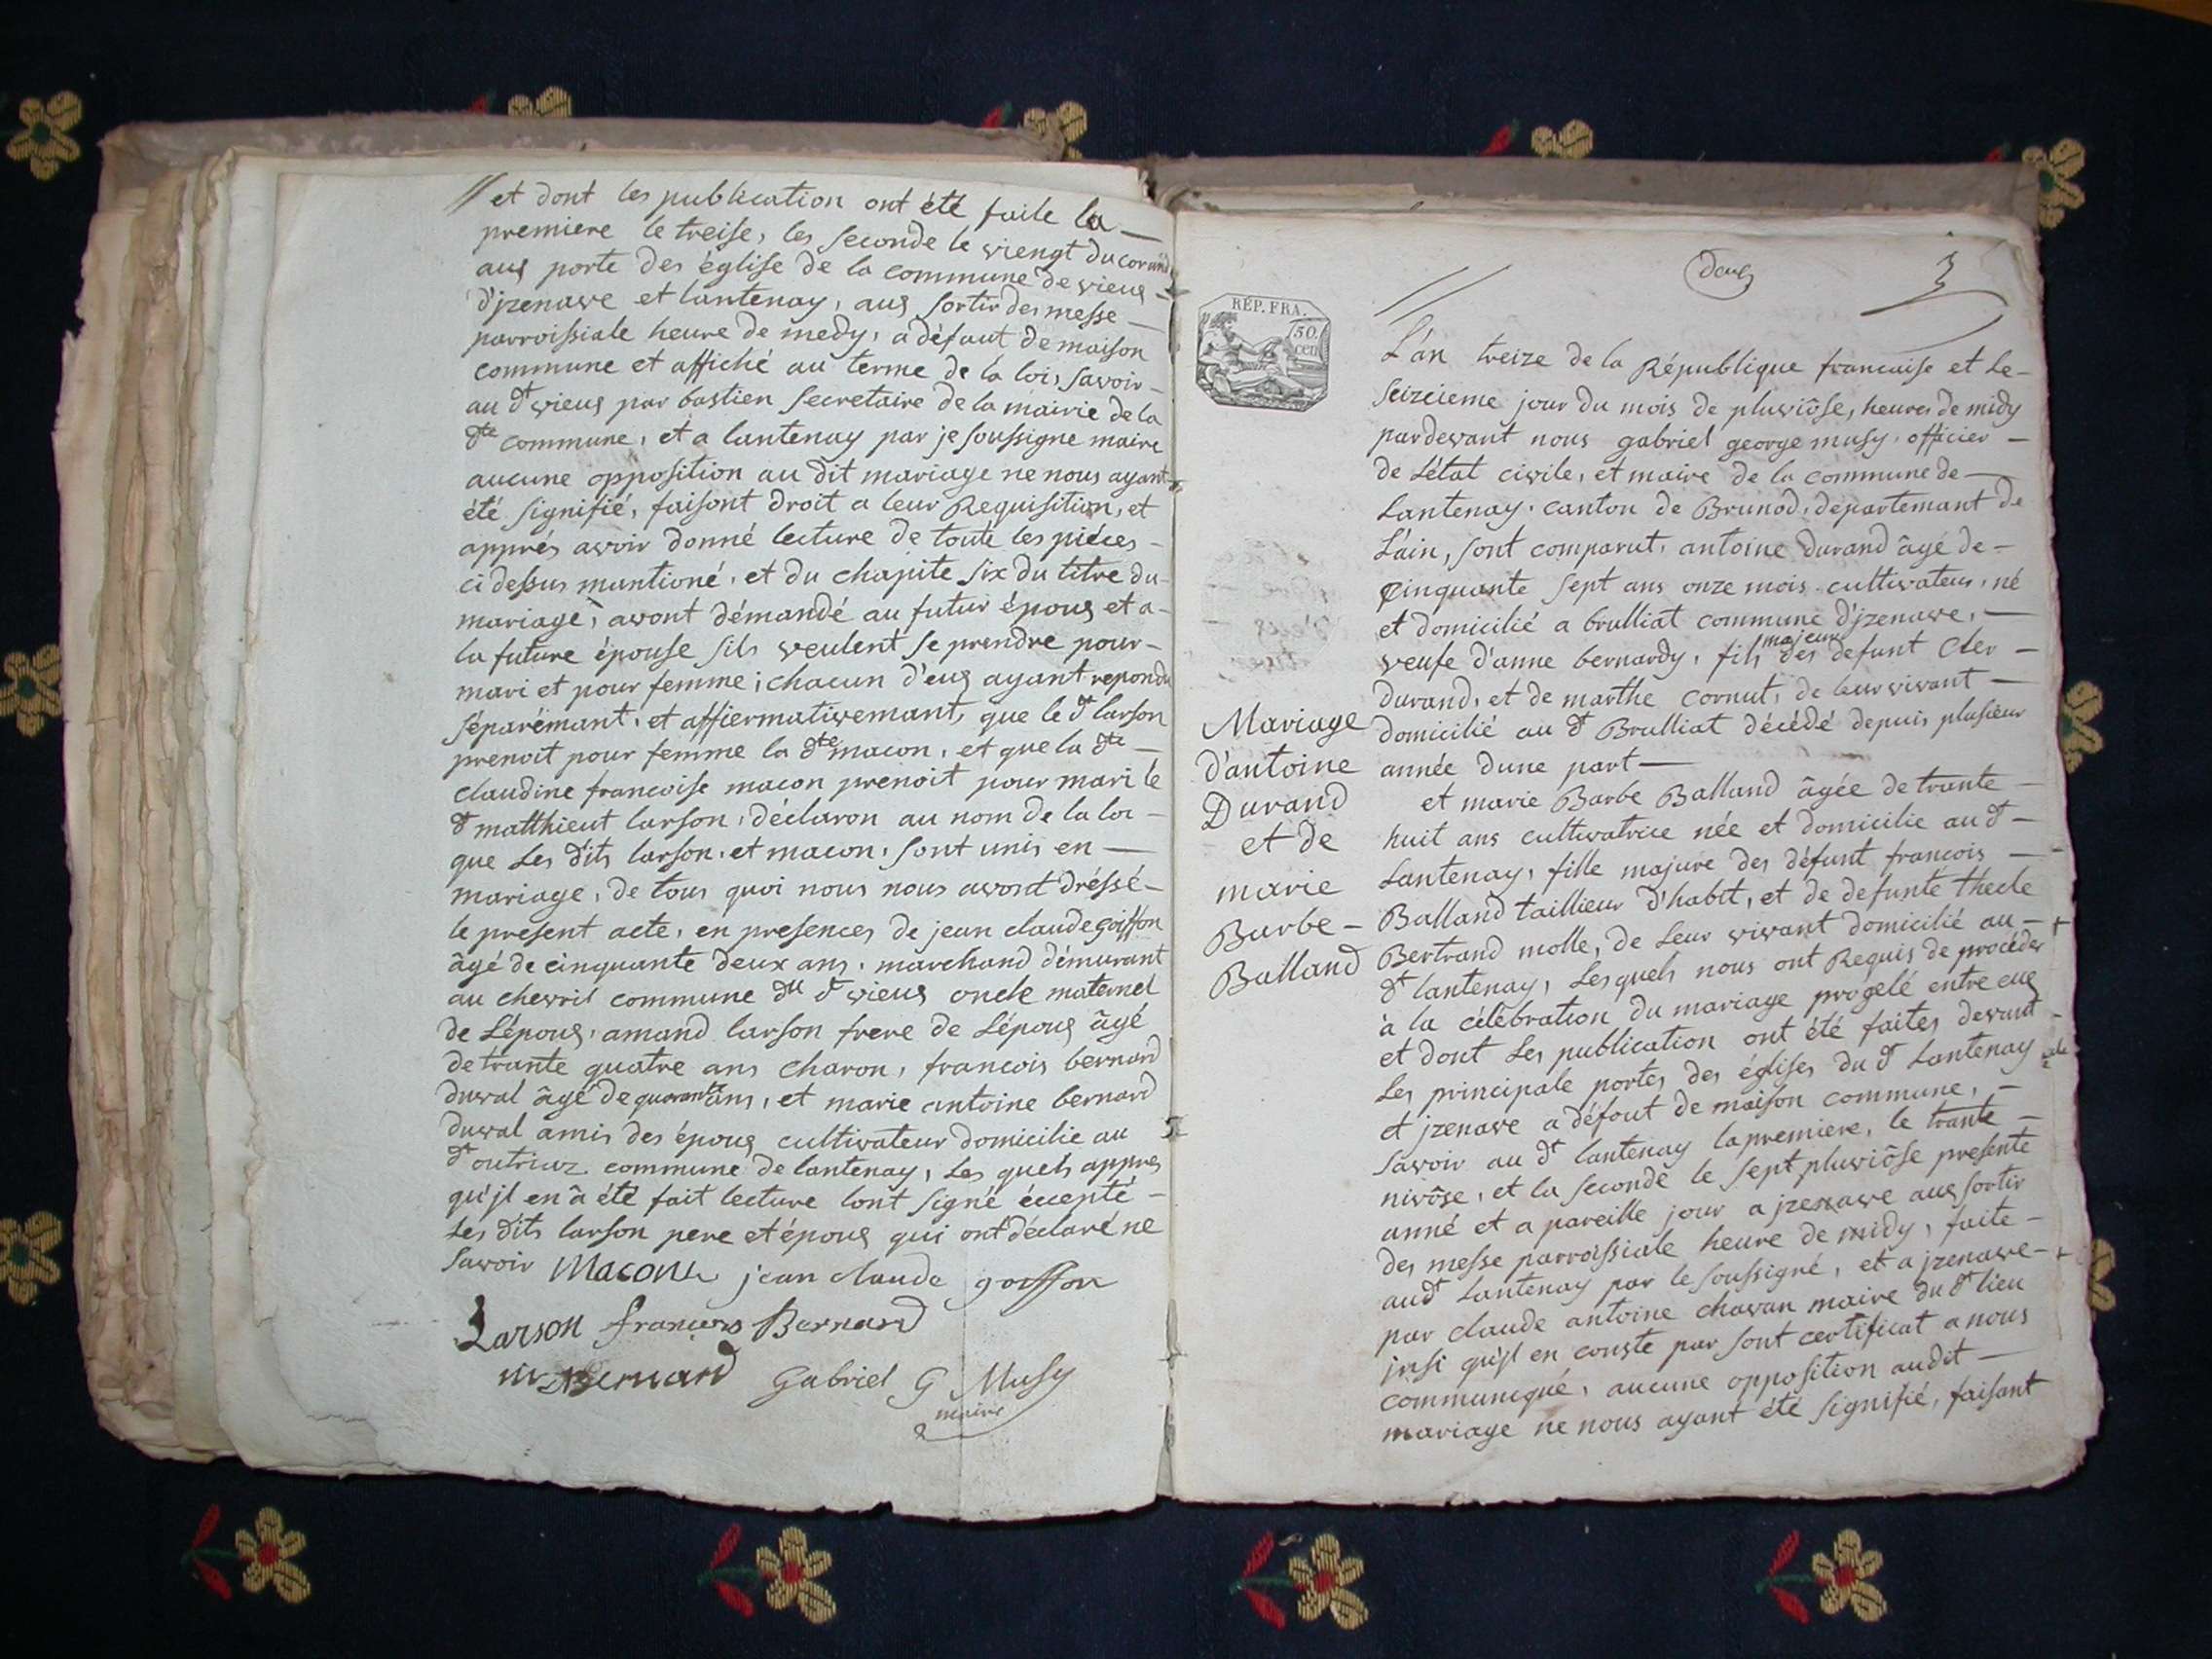 // et dont les publication ont été faite la —
premiere le treise, les seconde le viengt du corant
aux porte des église de la commune de vieux –
d'jzenave et lantenay, aux sortir des messe —
parroissiale heure de medy, a défaut de maison
commune et affiché au terme de la loi, savoir –
au dt vieux par bastien secretaire de la mairie de la
dte commune, et a lantenay par je soussigne maire
aucune opposition au dit mariage ne nous ayant
été signifié, faisont droit a leur Requisition, et
apprés avoir donné lecture de toute les piéces –
ci dessus mantioné, et du chapite six du titre du –
mariage, avont démandé au futur époux et a –
la future épouse sils veulent se prendre pour –
mari et pour femme; chacun d'eux ayant repondu
séparémant, et affiermativemant, que le dt larson
prenoit pour femme la dte macon, et que la dte —
claudine francoise macon prenoit pour mari le
dt matthieut larson, déclaron au nom de la loi –
que Les dits larson, et macon, sont unis en —
mariage, de tous quoi nous nous avont dréssé –
le present acte, en presences de jean claude goiffon
âgé de cinquante deux ans, marchand démurant
au chevril commune du dt vieux oncle maternel
de L'époux, amand larson frere de L'époux âgé
de trante quatre ans charon, francois bernard
duval âgé de quarante ans, et marie antoine bernard
duval amis des époux cultivateur domicilie au
dt outriaz commune de lantenay, Les quels appres
qu'jl en â été fait lecture lont signé éxcenté –
Les dits larson pere et époux qui ont déclaré ne
savoir Macon jean claude goiffon
Larson francois Bernard
m a Bernard Gabriel G Musy
maire
deux
3
RÉP. FRA.
50.
cen
L'an treize de la République francaise et Le –
seizeieme jour du mois de pluviôse, heures de midy
pardevant nous gabriel george musy officier –
de L'état civile, et maire de la commune de —
Lantenay canton de Brunod, départemant de
L'ain, sont comparut, antoine durand âgé de –
cinquante sept ans onze mois cultivateur, né
et domicilié a brulliat commune d'jzenave, —
veufe d'anne bernardy, fils majeur des defunt cler –
durand, et de marthe cornut, de leur vivant —
domicilié au dt Brulliat décédé depuis plusieur
année dune part —
Mariage
d'antoine
Durand
et de
marie
Barbe –
Balland
et marie Barbe Balland âgée de trante –
huit ans cultivatrice née et domicilie au dt –
Lantenay, fille majure des défunt francois —
Balland taillieur d'habit, et de defunte thecle
Bertrand molle, de Leur vivant domicilié au –
dt lantenay, Lesquels nous ont Requis de procéder
à la célébration du mariage progelé entre eux
et dont Les publication ont été faites devant
Les principale portes des églises du dt Lantenay
et jzenave a défout de maison commune, –
savoir au dt lantenay la premiere, le trante –
nivôse, et la seconde le sept pluviôse presente
anné et a pareille jour a jzenave aux sortir
des messe parroissiale heure de midy, faite –
au dt Lantenay par le soussigné, et a jzenave –
par claude antoine chavan maire du dt lieu
jnsi qu'jl en conste par sont certificat a nous
communiqué, aucune opposition audit —
mariage ne nous ayant été signifié, faisant